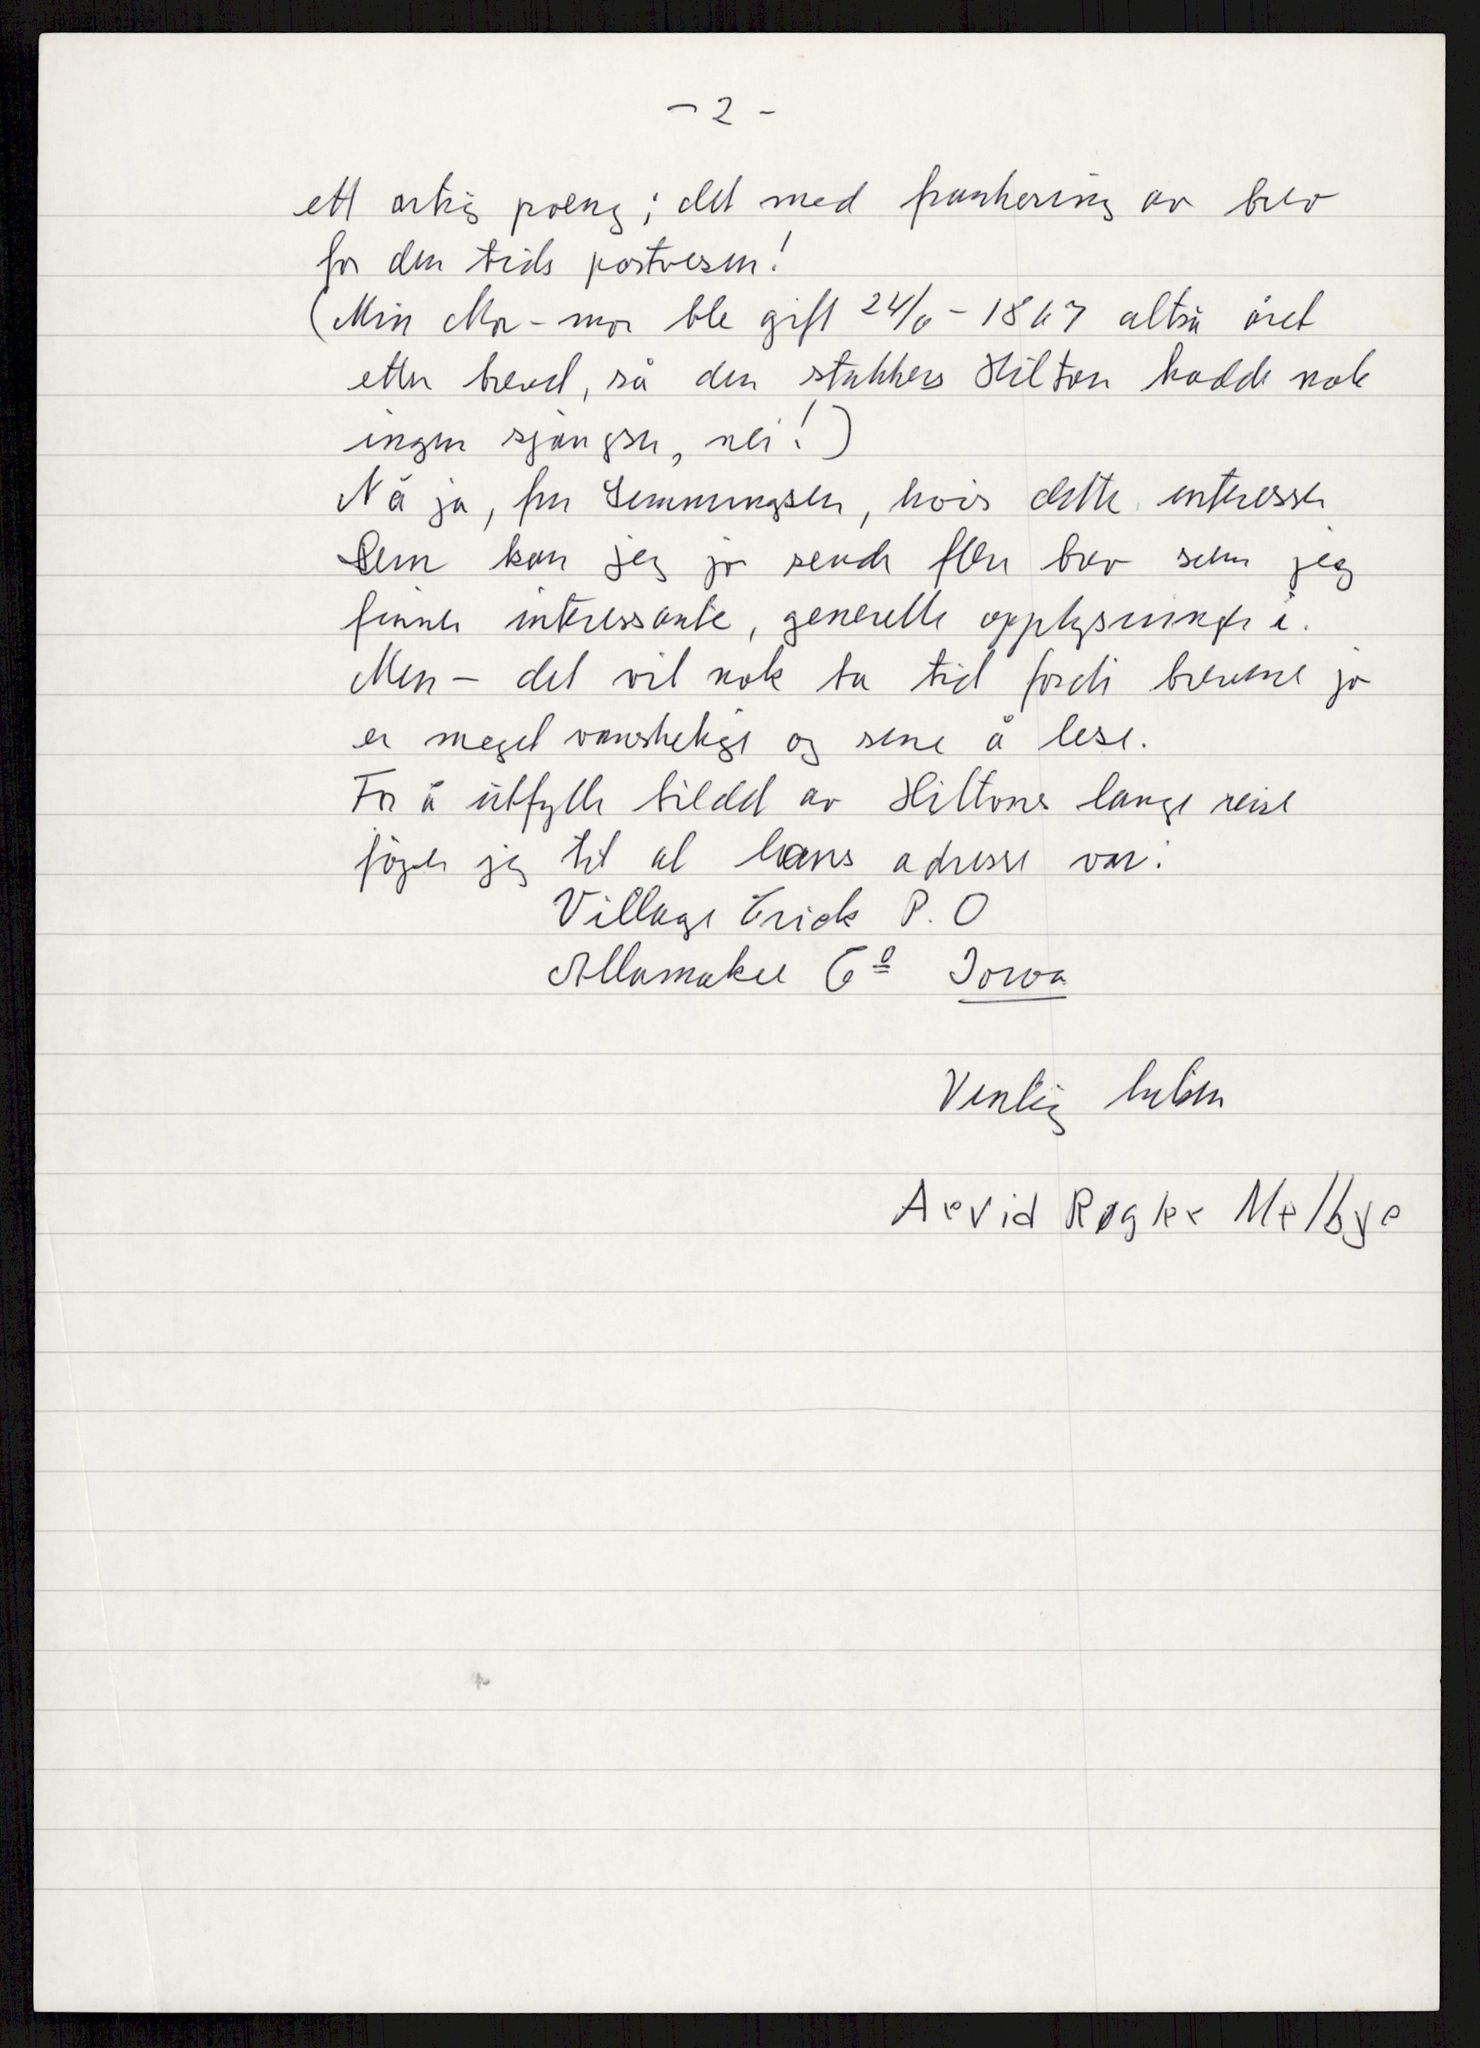 - 2 -
ett artig poeng; det med frankering av brev
for den tids postvesen!
(Min Mor-mor ble gift 24/6 - 1867 altså året
etter brevet, så den stakkers Hilton hadde nok
ingen sjangse, nei!)
Nå ja, fru Semmingsen, hvis dette interesser
Dem kan jeg jo sende flere brev som jeg
finner interessante, generelle opplysninger i.
Men - det vil nok ta tid fordi brevene jo
er meget vanskelige og sene å lese.
For å utfylle bildet av Hiltons lange reise
føyer jeg til at hans adresse var:
Village Crick P. O
Allamakee Co Iowa
Venlig hilsen
Arvid Melbye